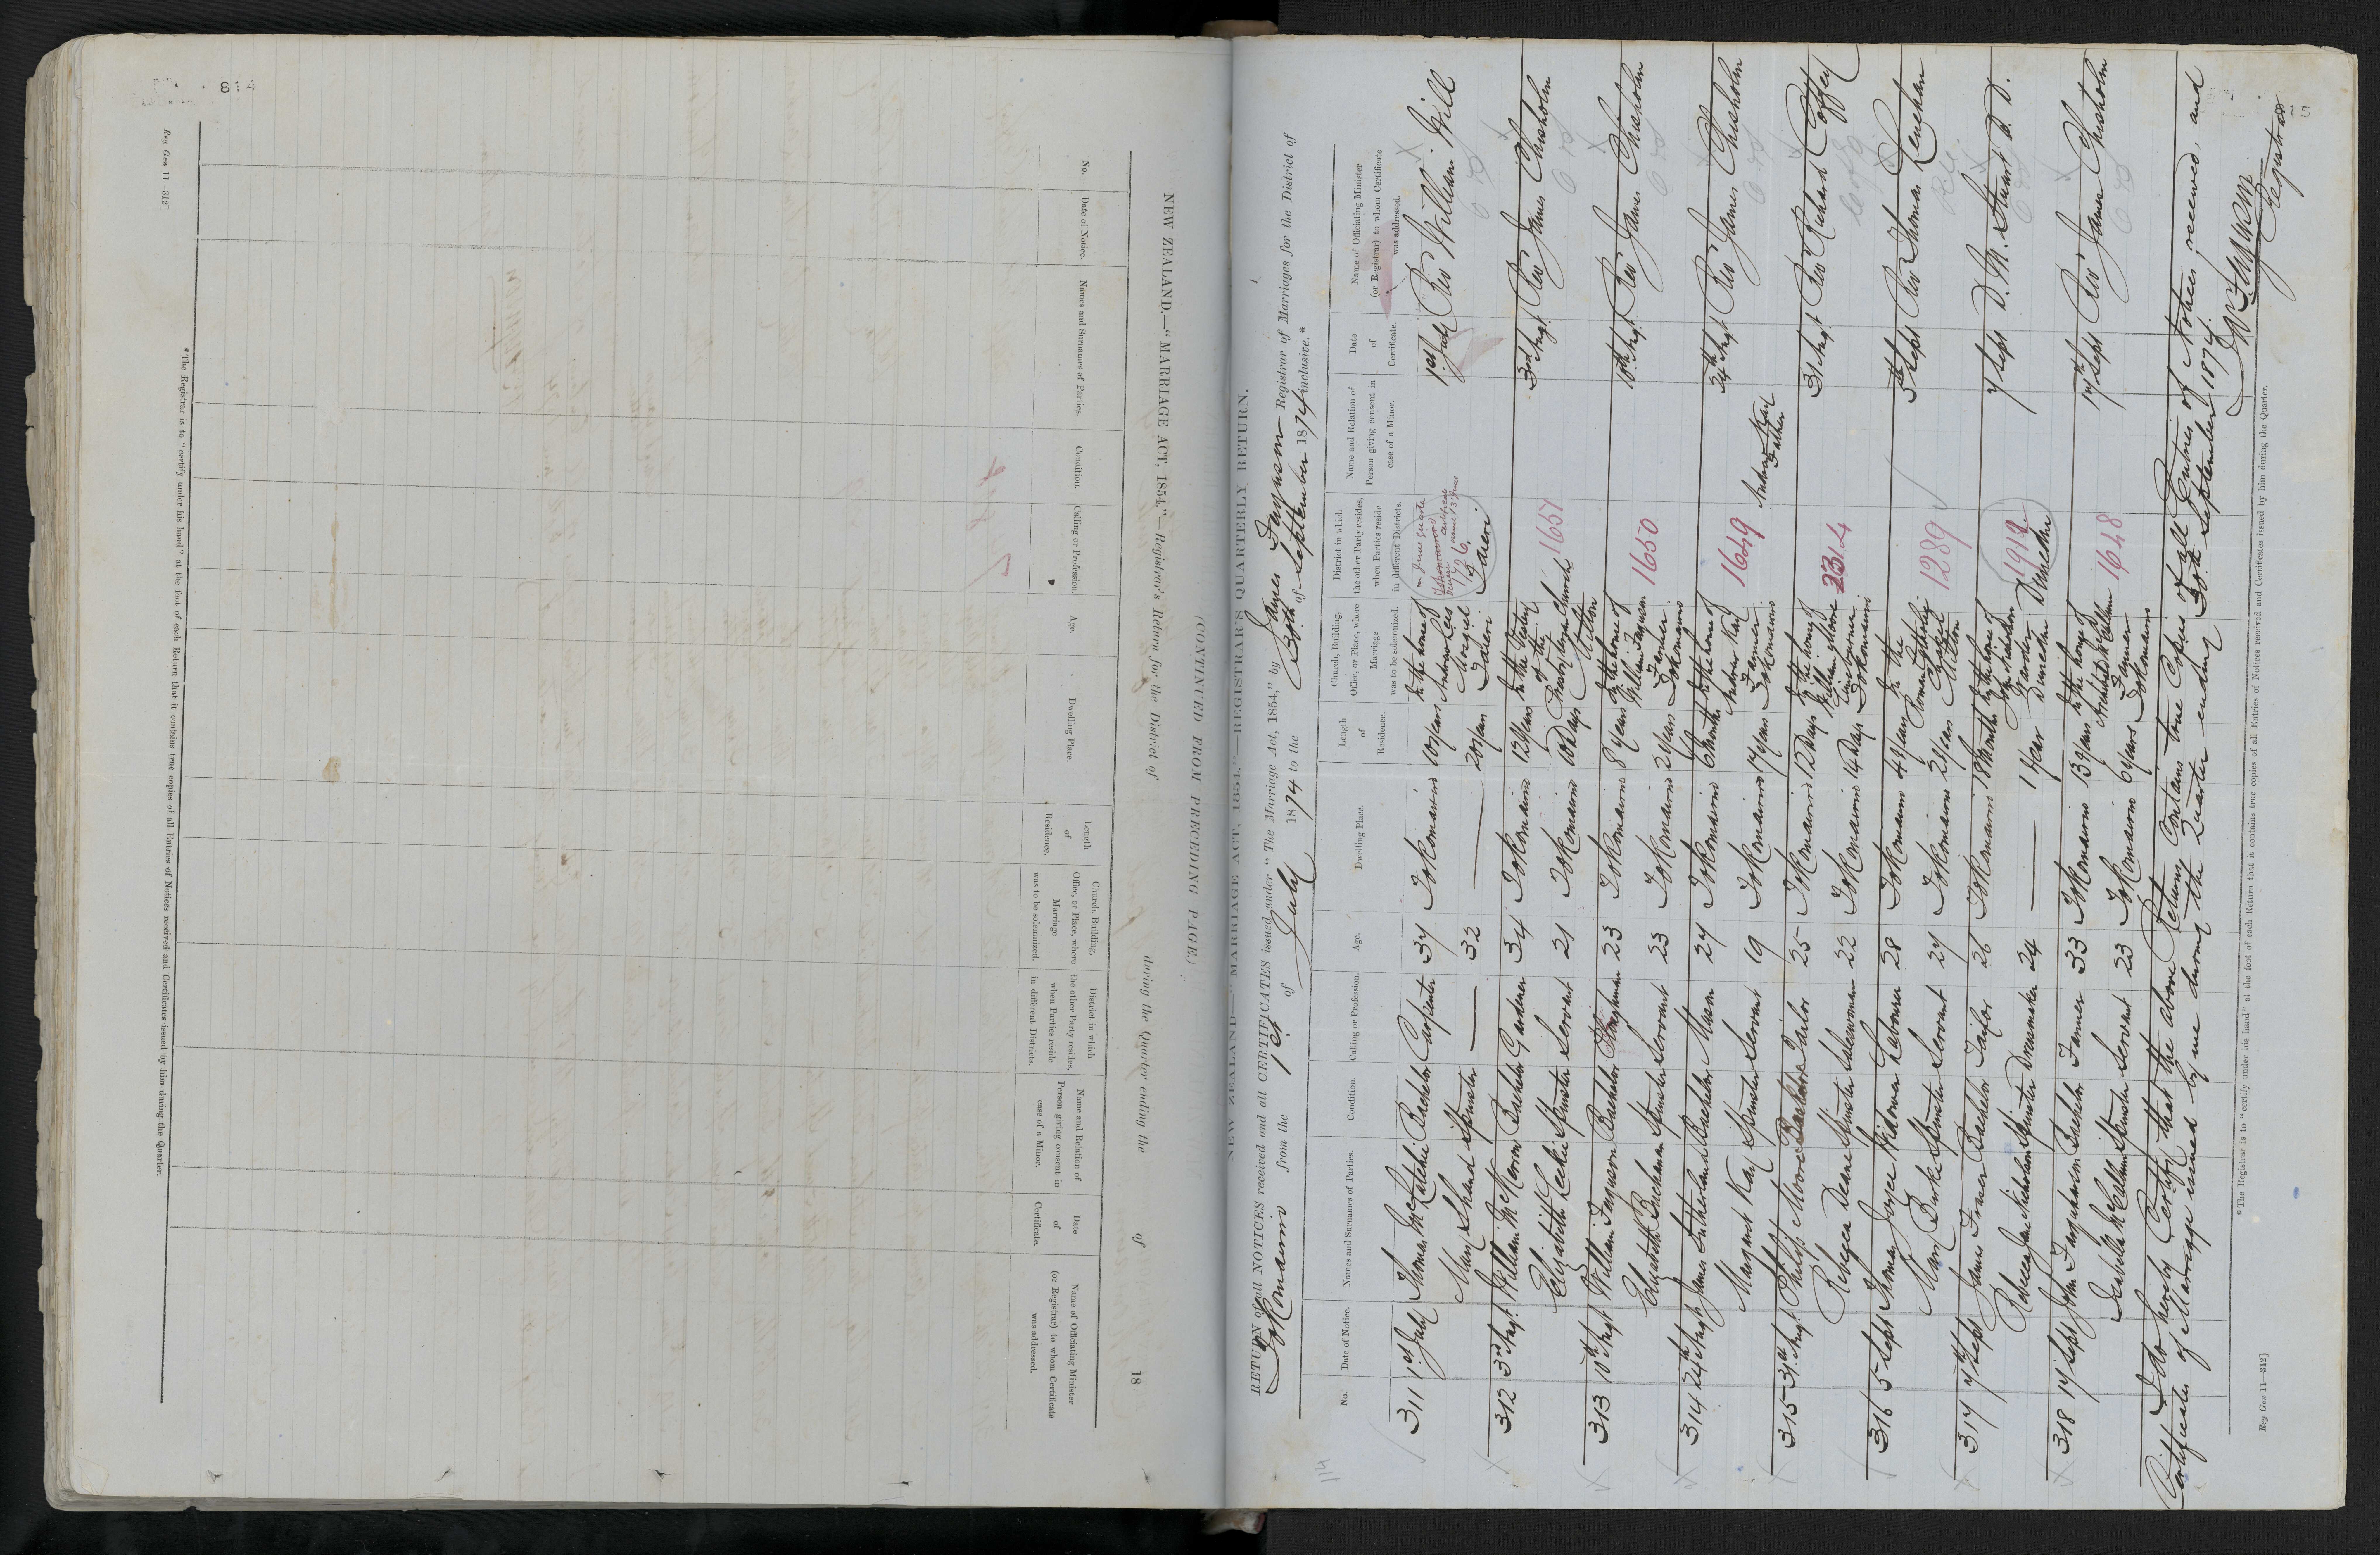 814
Reg Gen 11—312]
NEW ZEALAND.—"MARRIAGE ACT, 1854,"—Registrar's Return for the District of during the Quarter ending the of 18
(CONTINUED FROM PRECEDING PAGE.)
No. Date of Notice. Names and Surnames of Parties. Condition. Calling or Profession. Age. Dwelling Place. Length of Residence. Church, Building, Office, or Place, where Marriage was to be solemnized. District in which the other Party resides, when Parties reside in different Districts. Name and Relation of Person giving consent in case of a Minor. Date of Certificate. Name of Officiating Minister (or Registrar) to whom Certificate was addressed.
*The Registrar is to "certify under his hand" at the foot of each Return that it contains true copies of all Entries of Notices received and Certificates issued by him during the Quarter.
NEW ZEALAND—"MARRIAGE ACT, 1854."—REGISTRAR'S QUARTERLY RETURN.
RETURN of all NOTICES received and all CERTIFICATES issued under "The Marriage Act, 1854," by James Ferguson Registrar of Marriages for the District of
Tokomairiro from the 1st of July 1874 to the 30th of September 1874 inclusive.*
114
No. Date of Notice. Names and Surnames of Parties. Condition. Calling or Profession. Age. Dwelling Place. Length of Residence. Church, Building, Office, or Place, where Marriage was to be solemnized. District in which the other Party resides, when Parties reside in different Districts. Name and Relation of Person giving consent in case of a Minor. Date of Certificate. Name of Officiating Minister (or Registrar) to whom Certificate was addressed.
311 1st July Thomas McLatchie Bachelor Carpenter 37 Tokomairiro 10 years In the house of Andrew Lees Mosgiel Taieri Taieri 1st July Rev William Will
Mary Shand Spinster — 32 — 20 years
312 3rd Augt William McMoron Bachelor Gardener 34 Tokomairiro 12 years In the Vestry of the Presbyterian Church Milton 1651 3rd Augt Rev James Chisholm
Elizabeth Leckie Spinster Servant 21 Tokomairiro 10 Days
313 10th Augt William Ferguson Bachelor Ploughman 23 Tokomairiro 8 years In the house of William Ferguson Farmer Tokomairiro 1650 10th Augt Rev James Chisholm
Elizabeth Buchanan Spinster Servant 23 Tokomairiro 2 years
314 24th Augt James Sutherland Bachelor Mason 27 Tokomairiro 6 Months In the house of Andrew Kay Farmer Tokomairiro 1649 24th Augt Rev James Chisholm
Margaret Kay Spinster Servant 19 Tokomairiro 17 years Andrew Kay Father
315 31st Augt Philip Moore Bachelor Tailor 25 Tokomairiro 12 Days In the house of William Moore Tokomairiro 2314 31 Augt Rev Richard Coffey
Rebecca Deane Spinster Saleswoman 22 Tokomairiro 14 Days
316 5 Sept Thomas Joyce Widower Labourer 28 Tokomairiro 4 years In the Roman Catholic Chapel Milton 1289 5th Sept Rev Thomas Lenehan
Mary Burke Spinster Servant 27 Tokomairiro 2 years
317 7th Sept James Fraser Bachelor Tailor 26 Tokomairiro 18 Months In the house of John Nicholson Dunedin 1912 Dunedin 7 Sept D. M. Stuart D. D.
Rebecca Jane Nicholson Spinster Dressmaker 24 — 1 year
318 17 Sept John Farquharson Bachelor Farmer 33 Tokomairiro 13 years In the house of Archibald McCallum Farmer Tokomairiro 1648 17th Sept Rev James Chisholm
Isabella McCallum Spinster Servant 23 Tokomairiro 6 years
I do hereby Certify that the above Returns contains true Copies of all Entries of Notices received, and
Certificates of Marriage issued by me during the Quarter ending 30th September 1874.
Ja Ferguson
Registrar
*The Registrar is to "certify under his hand" at the foot of each Return that it contains true copies of all Entries of Notices received and Certificates issued by him during the Quarter.
Reg Gen 11—312]